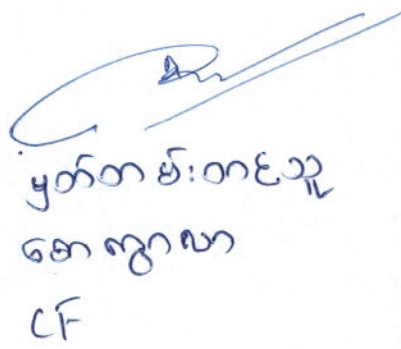 မှတ်တမ်းတင်သူ
စောကွာလာ
CF